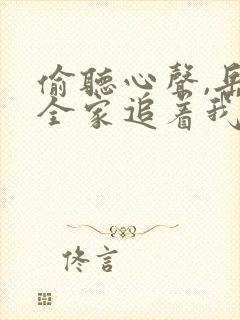 偷聽心聲,岳
全家追著我
佟言